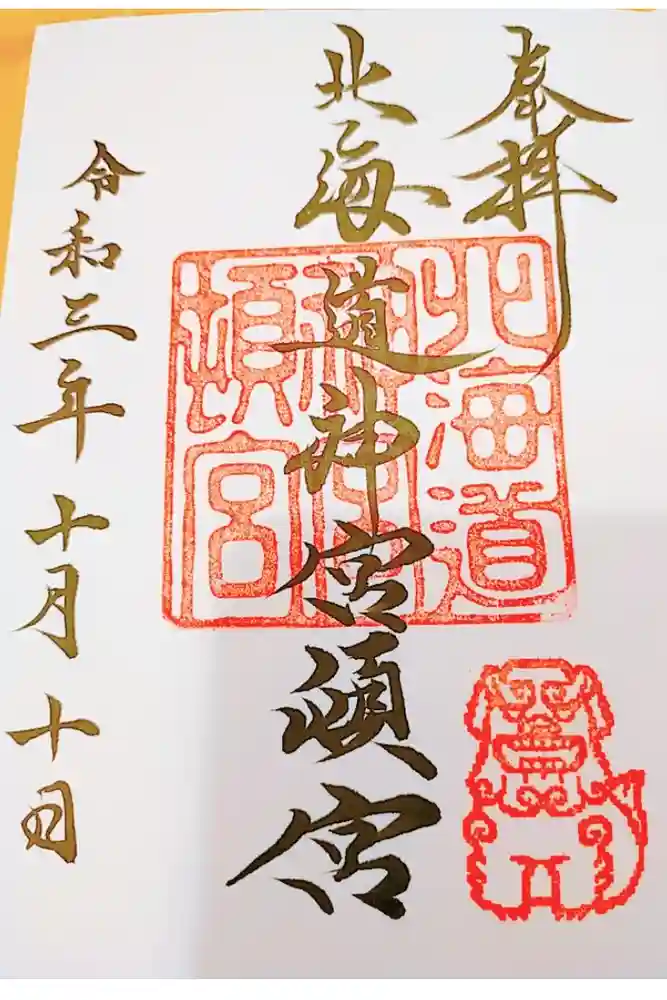 奉拝
北海道神宮頓宮
北海道
神宮
頓宮
令和三年十月十日